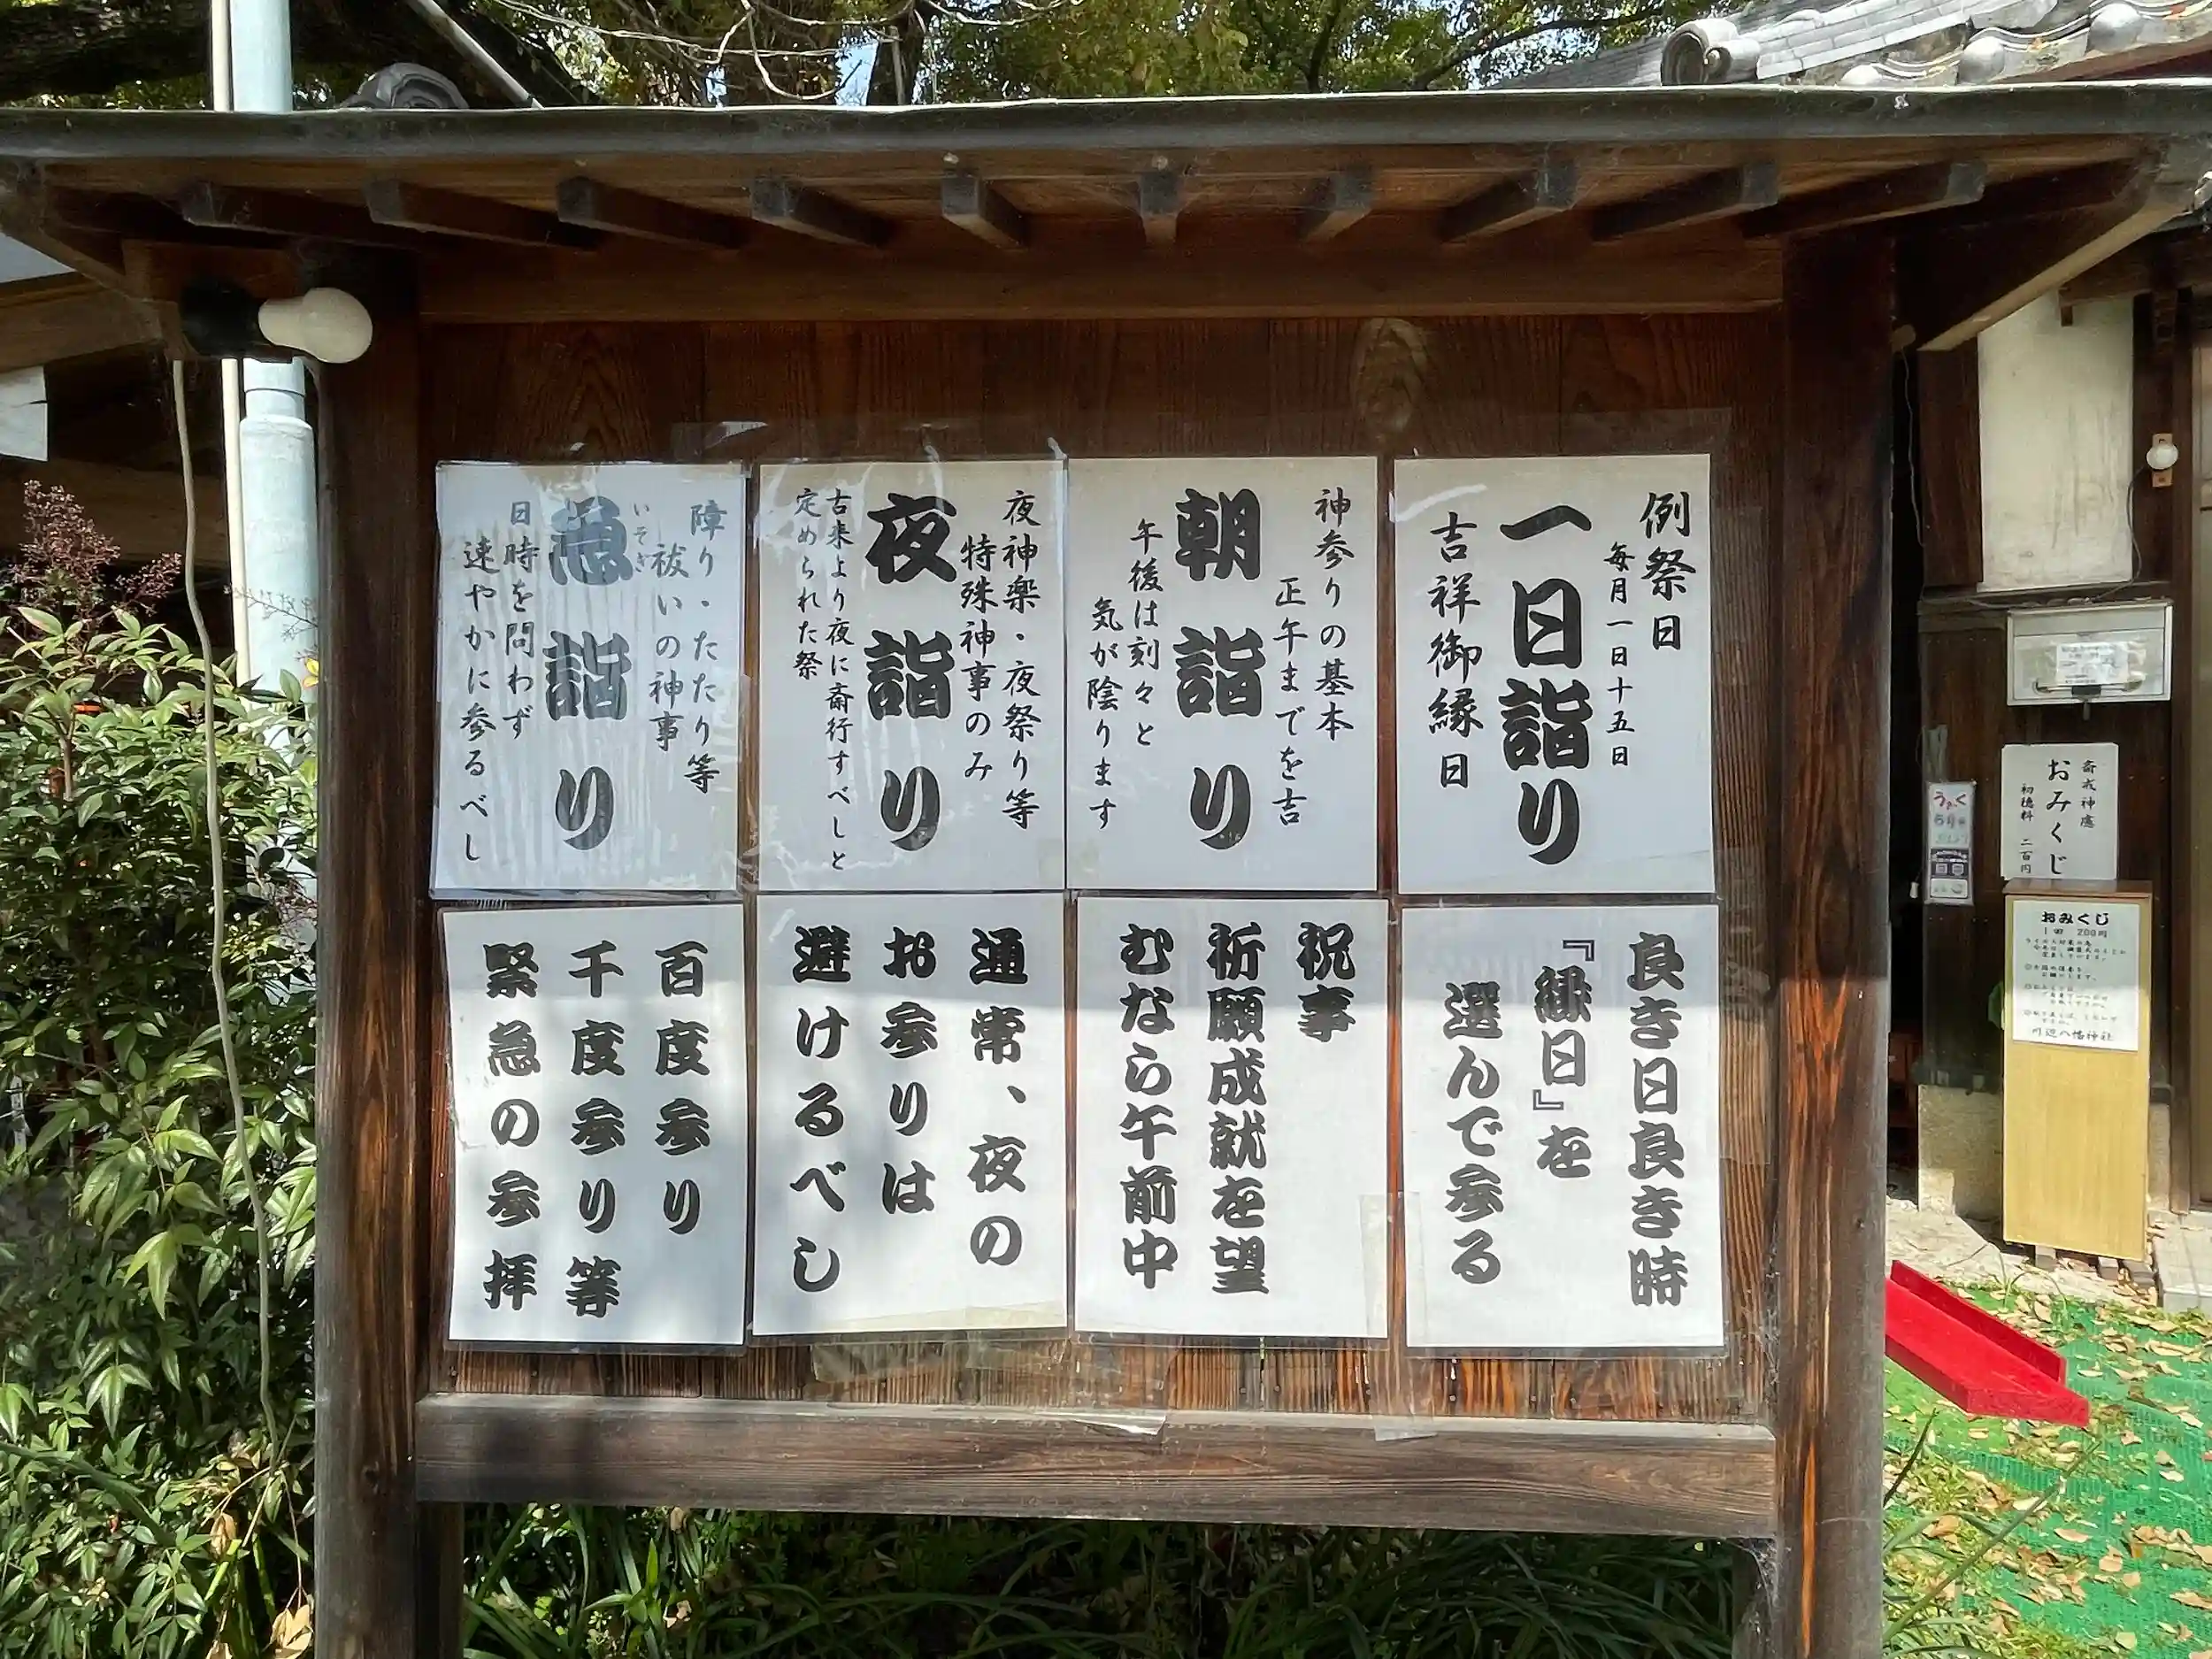 例祭日
毎月一日十五日
一日詣り
吉祥御縁日
神参りの基本
正午までを吉
朝詣り
午後は刻々と
気が陰ります
夜神楽・夜祭り等
特殊神事のみ
夜詣り
古来より夜に斎行すべしと
定められた祭
障り・たたり等
祓いの神事
いそぎ
急詣り
日時を問わず
速やかに参るべし
良き日良き時
『縁日』を
選んで参る
祝事
祈願成就を望
むなら午前中
通常、夜の
お参りは
避けるべし
百度参り
千度参り等
緊急の参拝
斎戒神處
おみくじ
初穂料 二百円
おみくじ
1回 200円
川辺八幡神社